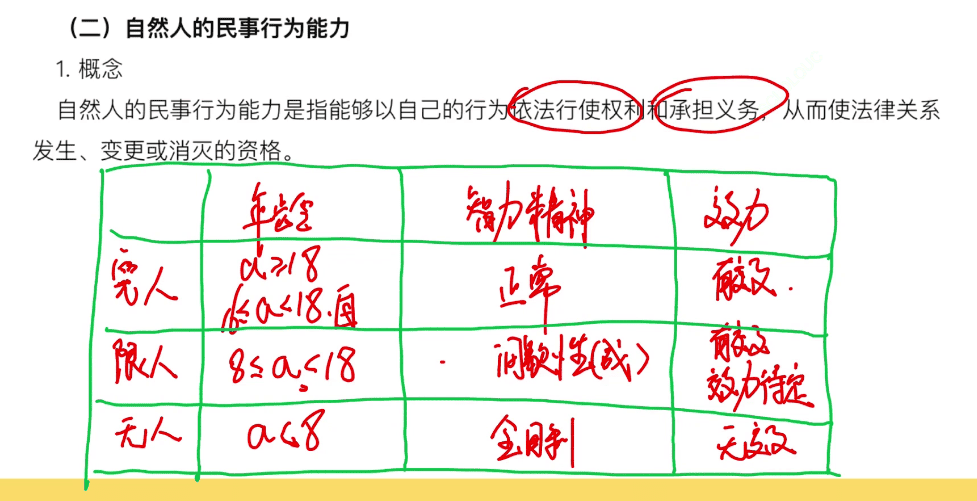 （二）自然人的民事行为能力
1. 概念
自然人的民事行为能力是指能够以自己的行为依法行使权利和承担义务，从而使法律关系
发生、变更或消灭的资格。
年龄 智力精神 效力
完人 a≥18 正常 有效.
16≤a<18.自
限人 8≤a<18 间歇性(成) 有效
效力待定
无人 a<8 无效